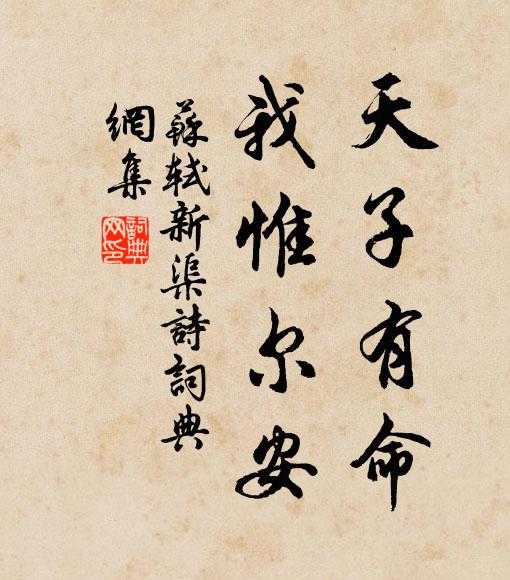 天子有命
我惟尔安
蘇軾新渠詩詞典
網集
詞典
网印